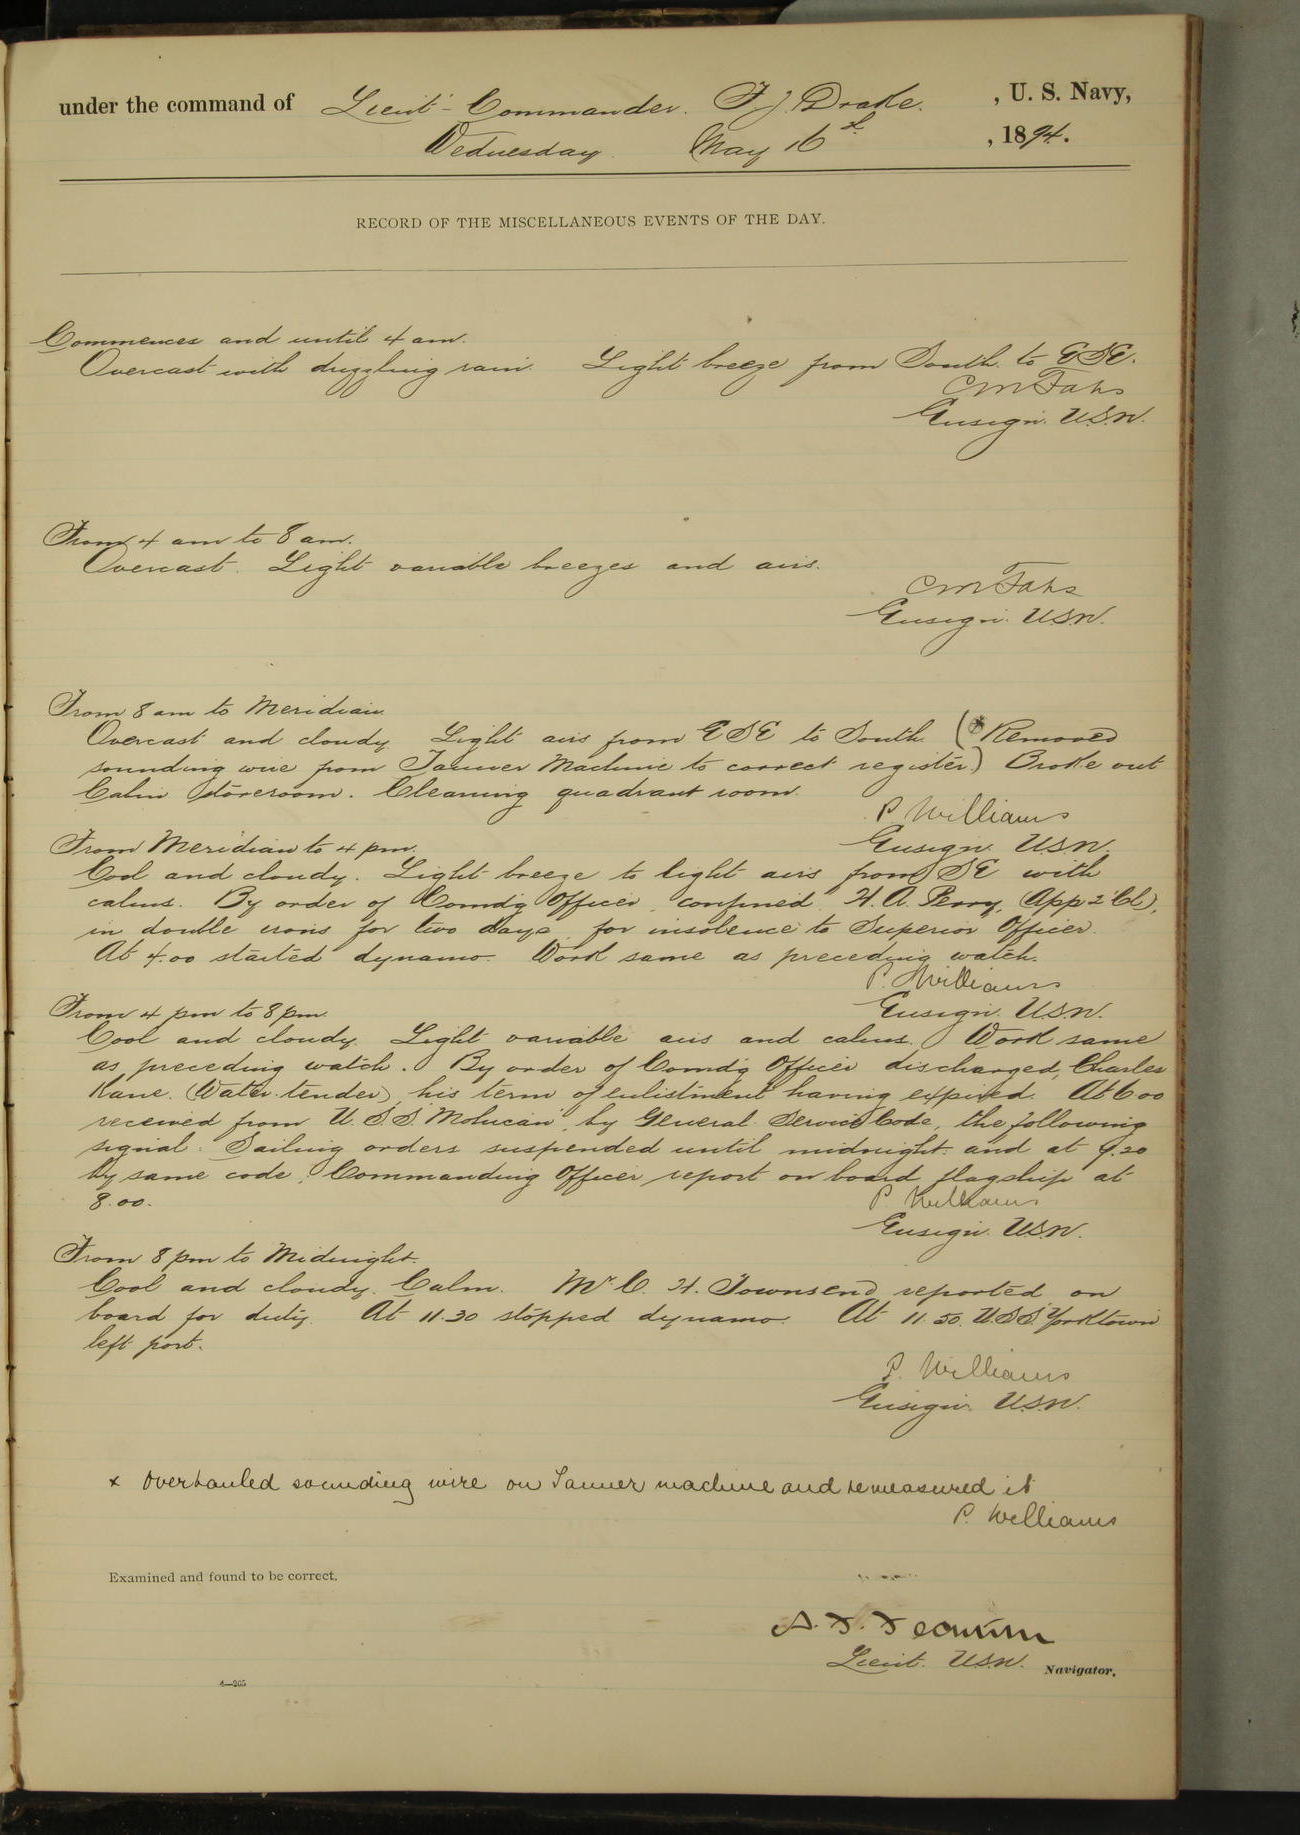 under the command of Lieut-Commander. F. J. Drake. , U. S. Navy,
Wednesday. May 16th , 1894.
RECORD OF THE MISCELLANEOUS EVENTS OF THE DAY.
Commences and until 4 am.
Overcast with drizzling rain. Light breeze from South to ESE.
C M Fahs
Ensign. U.S.N.
From 4 am to 8 am.
Overcast. Light variable breezes and airs.
C M Fahs
Ensign. U.S.N.
From 8 am to Meridian.
Overcast and cloudy. Light airs from ESE to South (* Removed
sounding wire from Tanner Machine to correct register) Broke out
Cabin storeroom. Cleaning quadrant room.
P. Williams
Ensign U.S.N.
From Meridian to 4 pm.
Cool and cloudy. Light breeze to light airs from SE with
calms. By order of Comdg Officer, confined H. A. Perry, (App 2' Cl),
in double irons for two days, for insolence to Superior Officer.
At 4.00 started dynamo. Work same as preceding watch.
P. Williams
Ensign. U.S.N.
From 4 pm to 8 pm.
Cool and cloudy. Light variable airs and calms. Work same
as preceding watch. By order of Comdg Officer discharged, Charles
Kane. (Water-tender), his term of enlistment having expired. At 6 00
received from U.S.S. "Mohican", by General Service Code, the following
signal: Sailing orders suspended until midnight. and at 7.20
by same code, Commanding Officer report on board flagship at
8.00.
P. Williams
Ensign U.S.N.
From 8 pm to Midnight.
Cool and cloudy. Calm. Mr. C. H. Townsend reported on
board for duty. At 11.30 stopped dynamo. At 11.50. U.S.S. "Yorktown"
left port.
P. Williams
Ensign. U.S.N.
x Overhauled sounding wire on Tanner machine and remeasured it
P. Williams
Examined and found to be correct.
Lieut. U.S.N. Navigator.
4—205